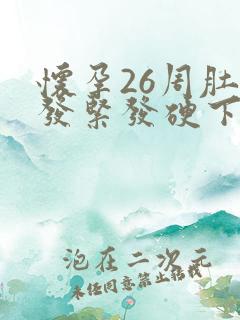 懷孕26周肚
發緊發硬下
泡在二次元
未经同意禁止转载